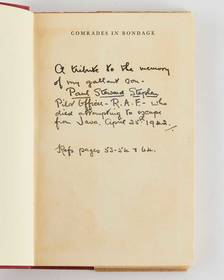 COMRADES IN BONDAGE
A tribute to the memory
of my gallant son -
Paul Steward Stephen
Pilot Officer - R.A.F - who
died attempting to escape
from Java. April 25th 1942.
Refs pages 53-54 & 64.